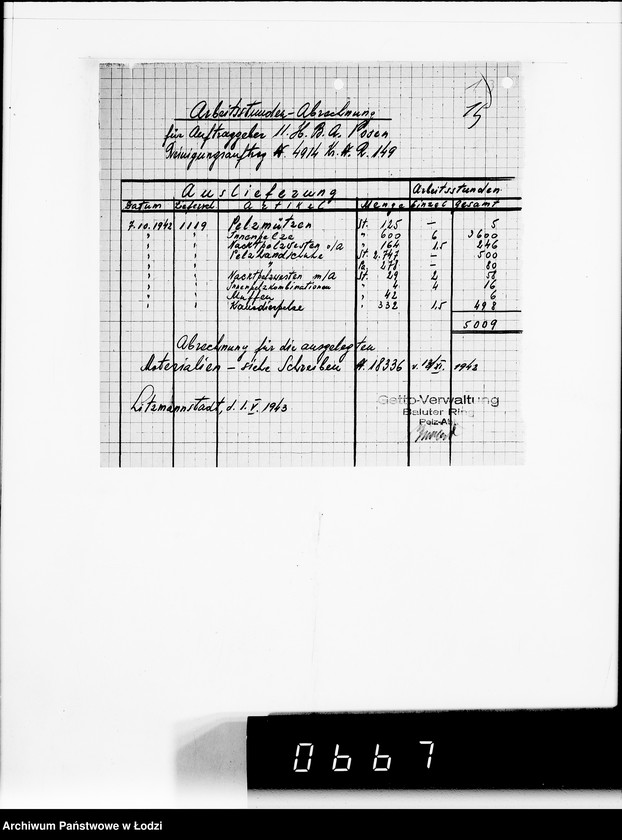 15
Arbeitsstunden-Abrechnung
für Auftraggeber 11 H. B. A. Posen
Reinigungsauftrag N. 4914 Kr. H. R. 149
Auslieferung Arbeitsstunden
Datum Liefersch. Artikel Menge Einzel Gesamt
7.10.1942 1119 Pelzmützen St. 125 — 5
" " Innenpelze " 600 6 3600
" " Nachtpelzwesten o/A " 164 1,5 246
" " Pelzhandschuhe St. 2.747 — 500
" " " P. 278 — 80
" " Nachtpelzwesten m/A St. 29 2 58
" " Innenpelzkombinationen " 4 4 16
" " Muffen " 42 6
" " Kavalierpelze " 332 1,5 498
5009
Abrechnung für die ausgelegten
Materialien – siehe Schreiben N. 18336 v. 12/XI. 1942
Litzmannstadt, d. 1. V. 1943
Getto-Verwaltung
Baluter Ring
Pelz-Abt.
0667
Archiwum Państwowe w Łodzi